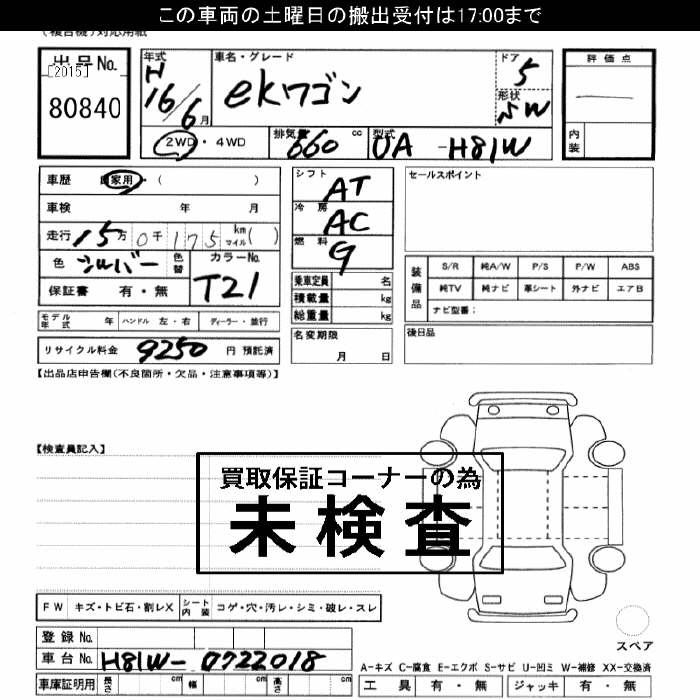 この車両の土曜日の搬出受付は17:00まで
(複合機)対応用紙
出品No.
[2015]
80840
年式
H
16/6月
車名・グレード
ekワゴン
ドア
5
形状
SW
評価点
内装
2WD・4WD
排気量
660cc
型式
UA-H81W
車歴 自家用・( )
車検 年 月
走行 15万0千175km マイル( )
色 シルバー
色替
カラーNo.
T21
保証書 有・無
モデル年式 年 ハンドル 左・右 ディーラー・並行
リサイクル料金 9250 円 預託済
シフト
AT
冷房
AC
燃料
G
乗車定員 名
積載量 kg
総重量 kg
名変期限
月 日
セールスポイント
装備品
S/R 純A/W P/S P/W ABS
純TV 純ナビ 革シート 外ナビ エアB
ナビ型番:
後日品
【出品店申告欄(不良箇所・欠品・注意事項等)】
【検査員記入】
買取保証コーナーの為
未検査
FW キズ・トビ石・割レX シート内装 コゲ・穴・汚レ・シミ・破レ・スレ
登録No.
車台No. H81W-0722018
車庫証明用 長さ cm 幅 cm 高さ cm
スペア
A-キズ C-腐食 E-エクボ S-サビ U-凹ミ W-補修 XX-交換済
工具 有・無 ジャッキ 有・無